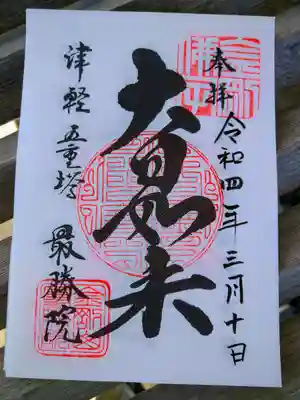 奉拝
令和四年三月十日
大日如来
津軽五重塔
最勝院